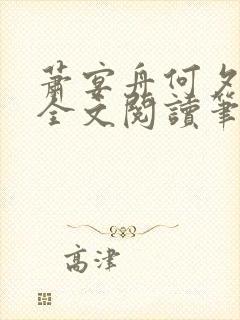 蕭宴舟何夕
全文閱讀筆
高津